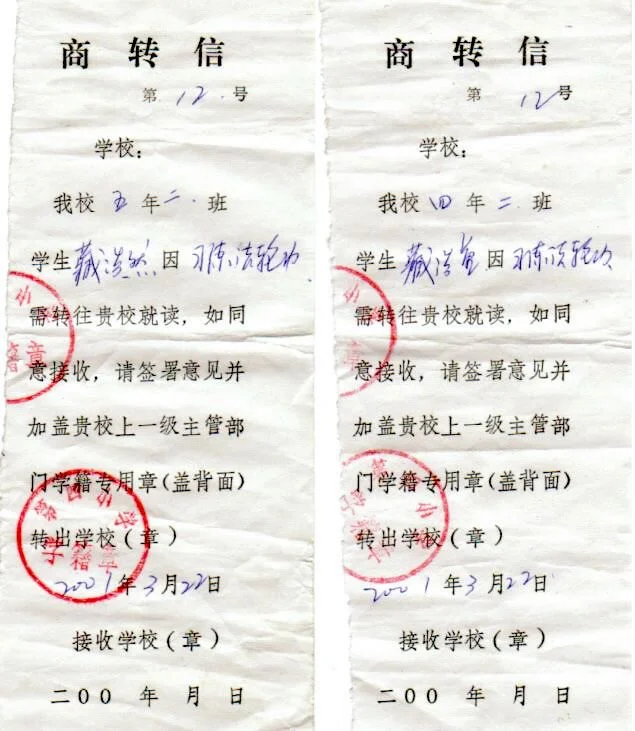 商转信
第 12 号
学校：
我校 五 年 二 班
学生 臧浩然 因 习练法轮功
需转往贵校就读，如同
意接收，请签署意见并
加盖贵校上一级主管部
门学籍专用章(盖背面)
转出学校(章)
2001年3月22日
接收学校(章)
二00 年 月 日
商转信
第 12 号
学校：
我校 四 年 二 班
学生 臧浩 因 习练法轮功
需转往贵校就读，如同
意接收，请签署意见并
加盖贵校上一级主管部
门学籍专用章(盖背面)
转出学校(章)
2001年3月22日
接收学校(章)
二00 年 月 日